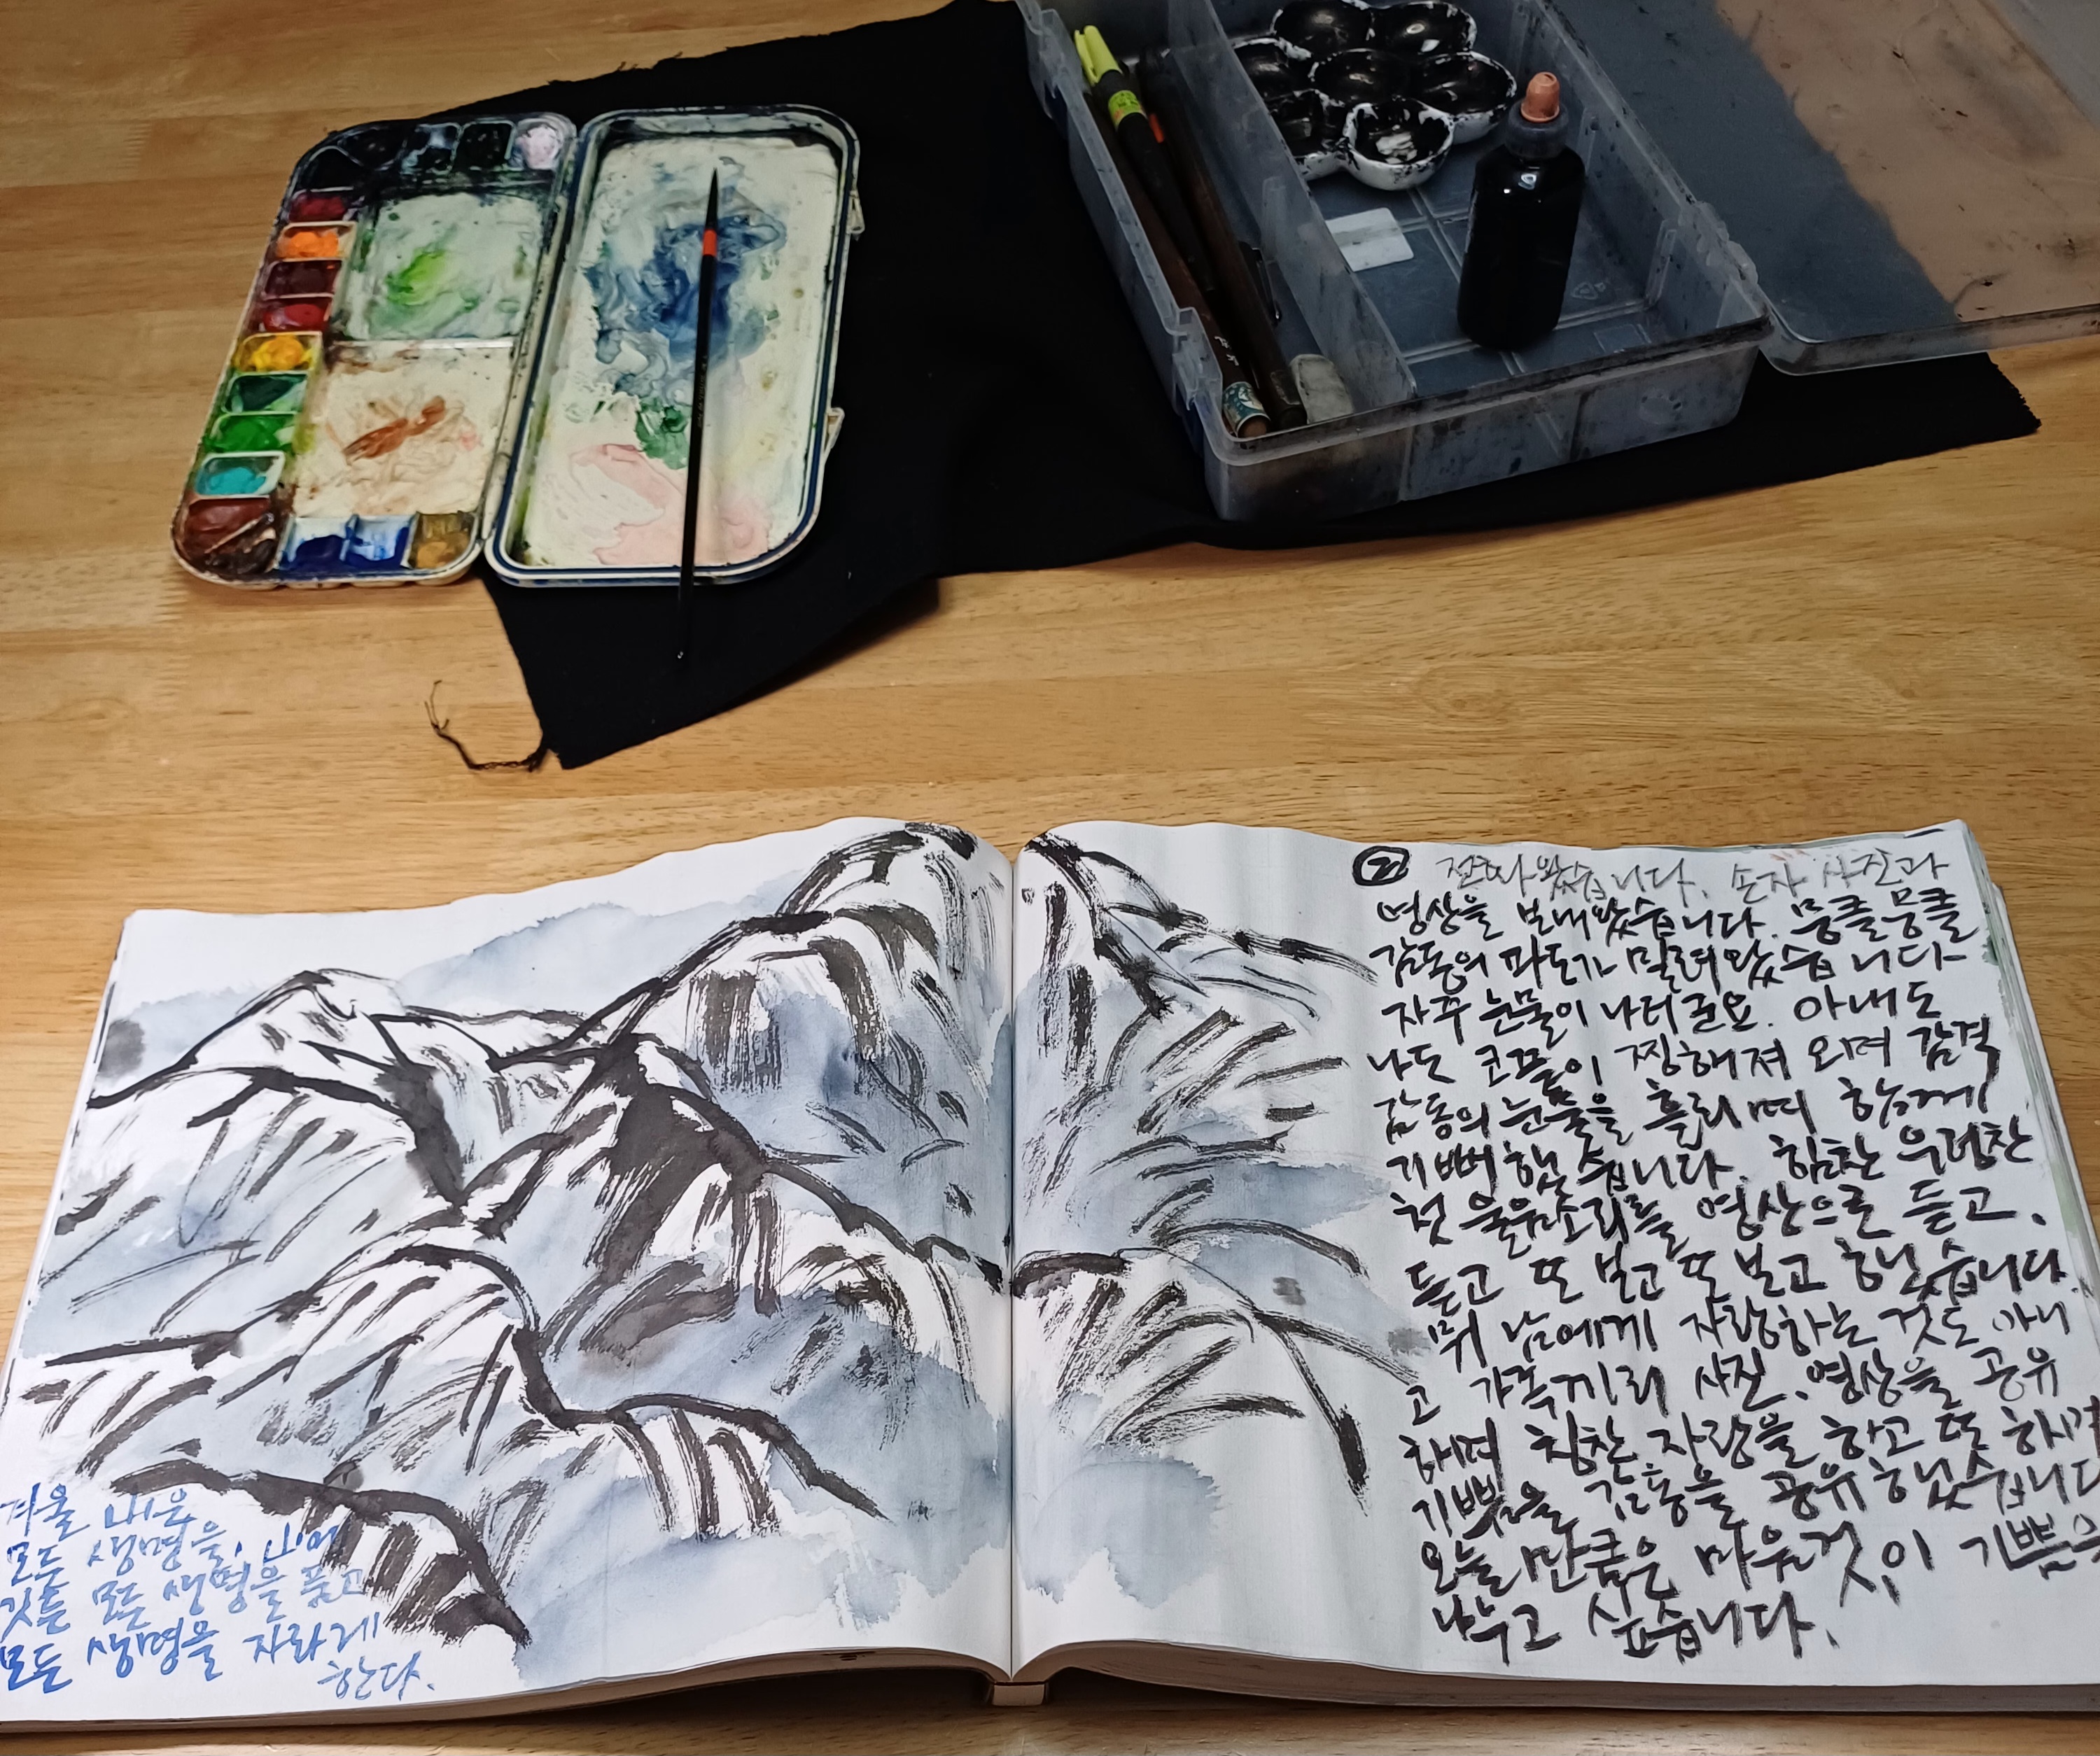 겨울 山은
모든 생명을, 山에
것든 모든 생명을 품고
모든 생명을 자라게
한다.
② 전해왔습니다. 손자 사진과
영상을 보내왔습니다. 뭉클뭉클
감동의 파도가 밀려왔습니다
자꾸 눈물이 나더군요. 아내도
나도 코끝이 찡해져 오며 감격
감동의 눈물을 흘리며 함께
기뻐했습니다. 힘찬 우렁찬
첫 울음소리를 영상으로 듣고.
듣고 또 보고 또 보고 했습니다.
뭐 남에게 자랑하는 것도 아니
고 가족끼리 사진.영상을 공유
하며 칭찬 자랑을 하고 또 하며
기쁨을 감동을 공유했습니다
오늘만큼은 마음것 이 기쁨을
나누고 싶습니다.